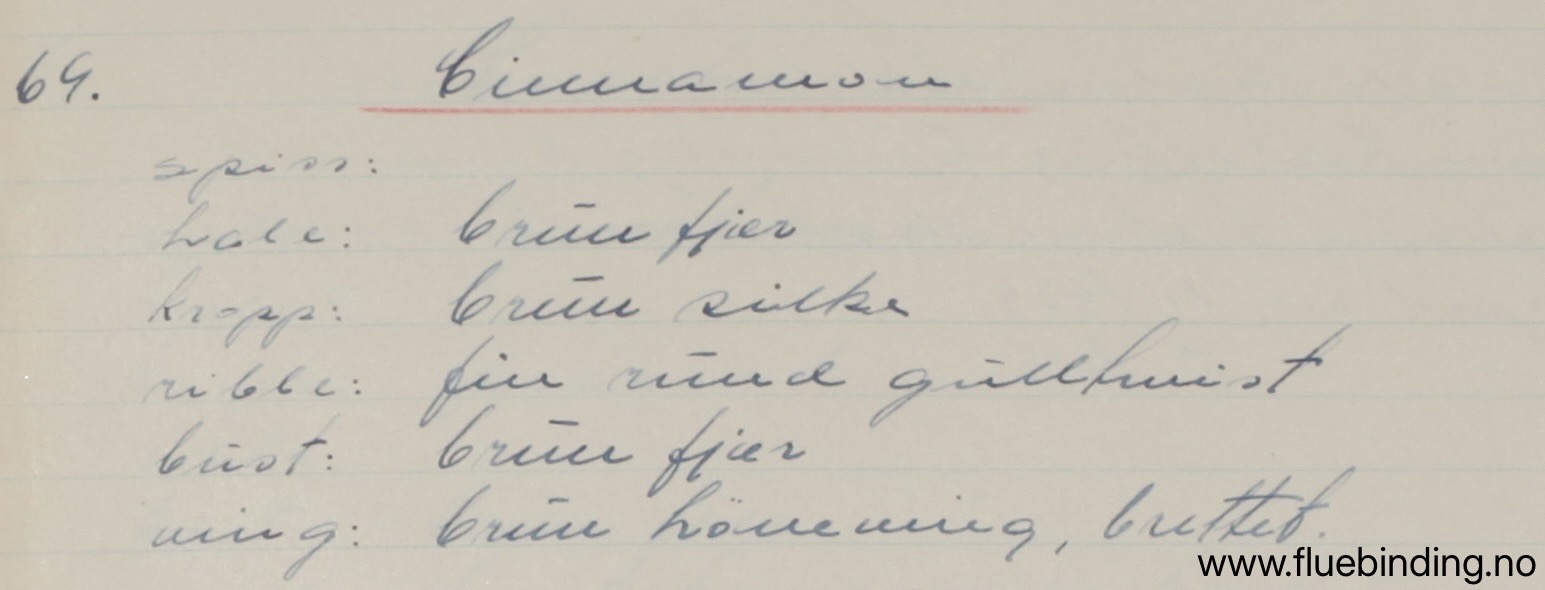 69. Cinnamon
spiss:
hale: brun fjær
kropp: brun silke
ribbe: fin rund gulltwist
bust: brun fjær
ving: brun hönneving, brettet.
www.fluebinding.no